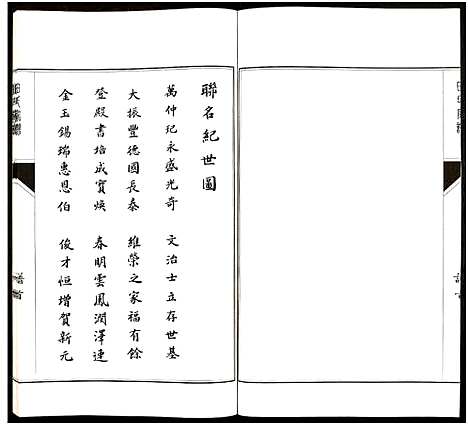 聯名紀世圖
萬仲玘永盛光奇 文治士立存世基
大振豐德國長泰 維榮之家福有餘
登殿書培成寳煥 春明雲鳳潤澤連
金玉錫瑞惠恩伯 俊才恒增賀新元
譜首